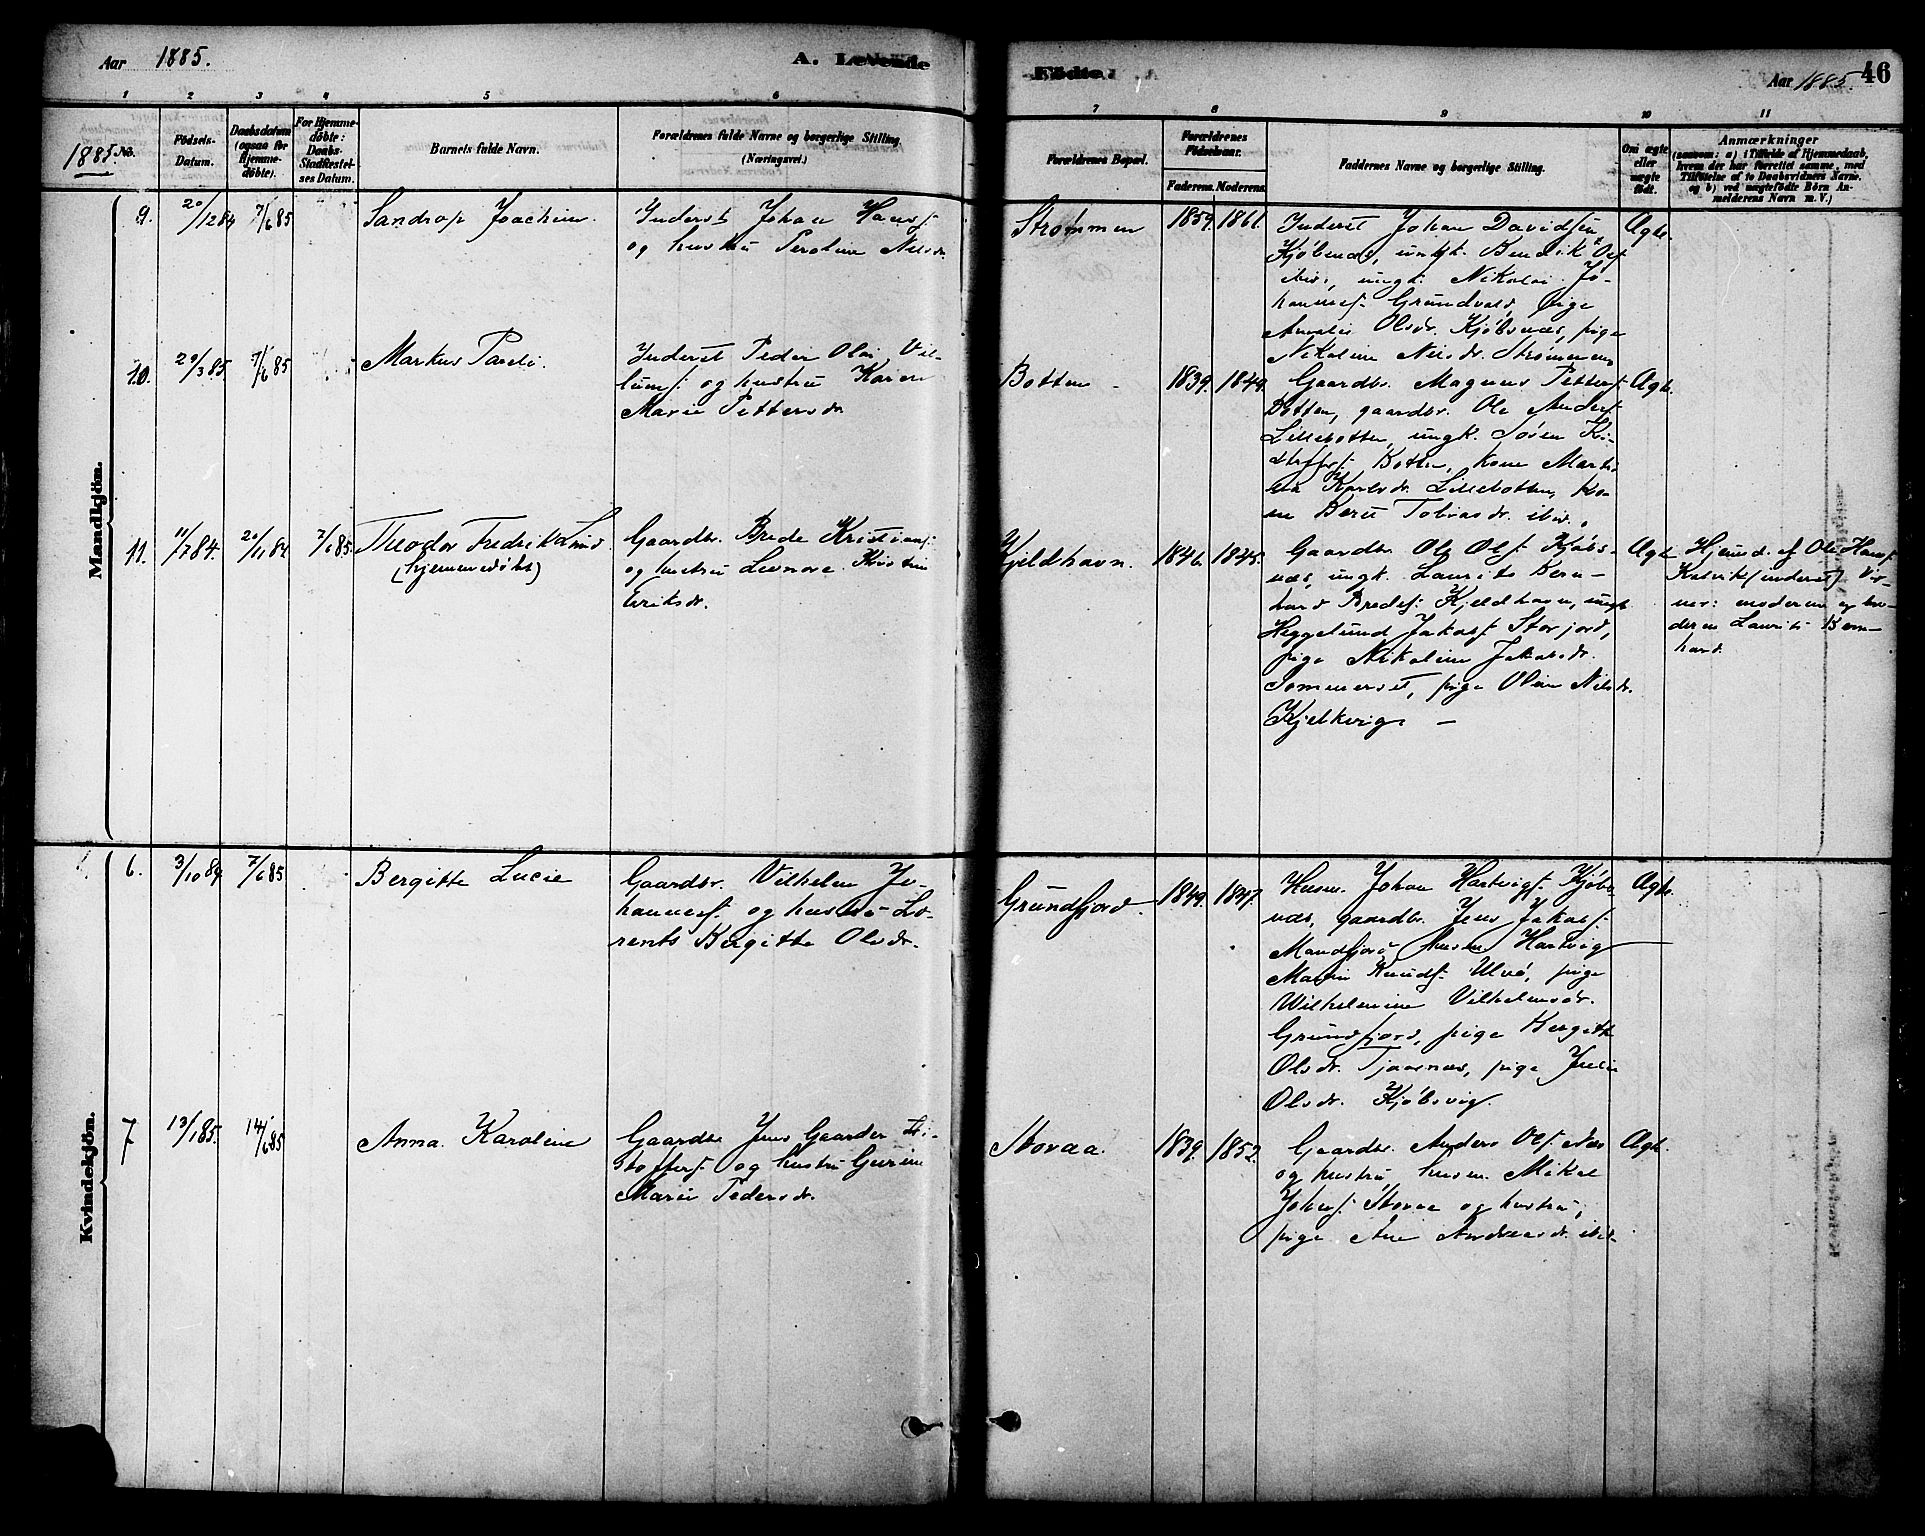 Aar 1885.
A. Levende
Födte.
Aar 1885.
46
1 2 3 4 5 6
7 8 9 10 11
1885 No.
Födsels-
Datum.
Daabsdatum
(ogsaa for
Hjemme-
döbte).
For Hjemme-
döbte:
Daabs-
Stadfæstel-
ses Datum.
Barnets fulde Navn.
Forældrenes fulde Navne og borgerlige Stilling.
(Næringsvei.)
Forældrenes Bopæl.
Forældrenes
Födselsaar.
Faderens. Moderens.
Faddernes Navne og borgerlige Stilling.
Om ægte
eller
uægte
födt.
Anmærkninger
(saasom: a) i Tilfælde af Hjemmedaab,
hvem der har forrettet samme, med
Tilföielse af to Daabsvidners Navne,
og b) ved uægtefödte Börn An-
melderens Navn m. V.)
Mandkjön.
9.
20/12 84
7/6 85
Joachim.
Inderst Johan Hansf.
og hustru Peroline Nilsdr.
Strømmen
1859. 1861.
Inderst Johan Davidsen
Kjøbsnæs, ungk. Bendik Olsf.
ibid., ungk. Nikolai Jo-
hannesf. Grundvald, pige
Olsdr. Kjøbsnæs, pige
Nikoline Nilsdr. Strømmen
Ægte.
10.
29/3 85
7/6 85
Markus Pareli.
Inderst Peder Olai Vil-
lumsf. og hustru Karen
Marie Pettersdr.
Botten
1839. 1849.
Gaardbr. Magnus Petterf.
Botten, gaardbr. Ole Andersf.
Lillebotten, ungk. Søren Kri-
stoffersf. Botten, kone
Karlsdr. Lillebotten, ko-
ne Berit Tobiasdr. ibid.
Ægte.
11.
11/7 84.
20/11 84
7/6 85
Theodor Fredrik Lind
(hjemmedøbt)
Gaardbr. Brede Kristiansf.
og hustru Leonore
Eriksdr.
Kjeldhavn.
1846. 1845.
Gaardbr. Ole Olsf. Kjøbs-
næs, ungk. Laurits Bern-
hard Bredesf. Kjeldhavn, ungk
Heggelund Jakobsf. Storjord,
pige Nikoline Jakobsdr.
Sommerset, pige Oline Nilsdr.
Kjelkvig. —
Ægte
Hjemmed. af Ole Hansf.
Kalvik (inderst). Vid-
ner: moderen og bro-
deren Laurits Bern-
hard.
Kvindekjön.
6.
3/10 84
7/6 85
Bergitte Lucie
Gaardbr. Vilhelm Jo-
hannesf. og hustru Lo-
rents Bergitte Olsdr.
Grundfjord.
1849. 1847.
Husm. Johan Hartvigsf. Kjøbs-
næs, gaardbr. Jens Jakobsf.
Mandfjord, husm. Hartvig
Martin Knudsf. Ulvø, pige
Wilhelmine Vilhelmsdr.
Grundfjord, pige Bergitte
Olsdr. Tjaarnæs, pige
Olsdr. Kjøbsvig.
Ægte.
7
13/1 85.
14/6 85
Anna Karoline
Gaardbr. Jens Gaarder Kri-
stoffersf. og hustru Gurine
Marie Pedersdr.
Storaa.
1839. 1852.
Gaardbr. Anders Olsf. Næs
og hustru, husm. Mikal
Johnsf. Storaa og hustru,
pige Ane Andreasdr. ibid.
Ægte.